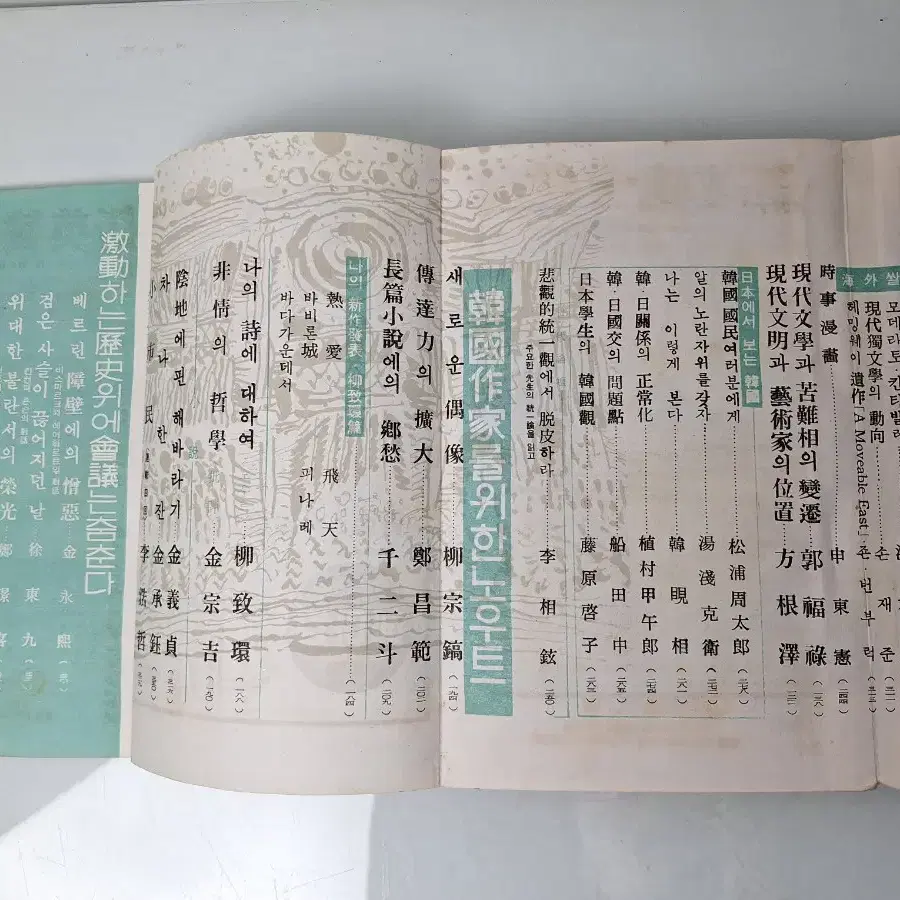 海外
모데라토·칸타
現代獨文學의 動向……손재준
헤밍웨이遺作「A Moveable East」…존·번부럭
時事漫畵……申東憲(一二四)
現代文學과 苦難相의 變遷…郭福祿
現代文明과 藝術家의 位置…方根澤
日本에서 보는 韓國
韓國 國民여러분에게……松浦周太郎
알의 노란자위를 갖자……湯淺克衛
나는 이렇게 본다……韓晛相
韓·日關係의 正常化……植村甲午郎
韓·日國交의 問題點……船田中
日本學生의 韓國觀……藤原啓子
悲觀的統一觀에서 脫皮하라……李相鉉(二五〇)
주요한 先生의 統一論을 읽고
韓國作家를위한노우트
새로운 偶像……柳宗鎬(一九四)
傳達力의 擴大……鄭昌範(二〇一)
長篇小說에의 鄕愁……千二斗(二〇九)
나의 新作發表·柳致環篇……(一八四)
熱愛 飛天
바비론城 괴나레
바다가운데서
나의 詩에 대하여……柳致環(一八八)
非情의 哲學……金宗吉(一九〇)
陰地에 핀 해바라기 金義貞
차나 한잔 金承鈺
小市民 李浩哲
激動하는歷史위에會議는춤춘다
베르린 障壁에의 憎惡…金永熙
검은 사슬이 끊어지던 날…徐東九
위대한 불란서의 榮光…鄭